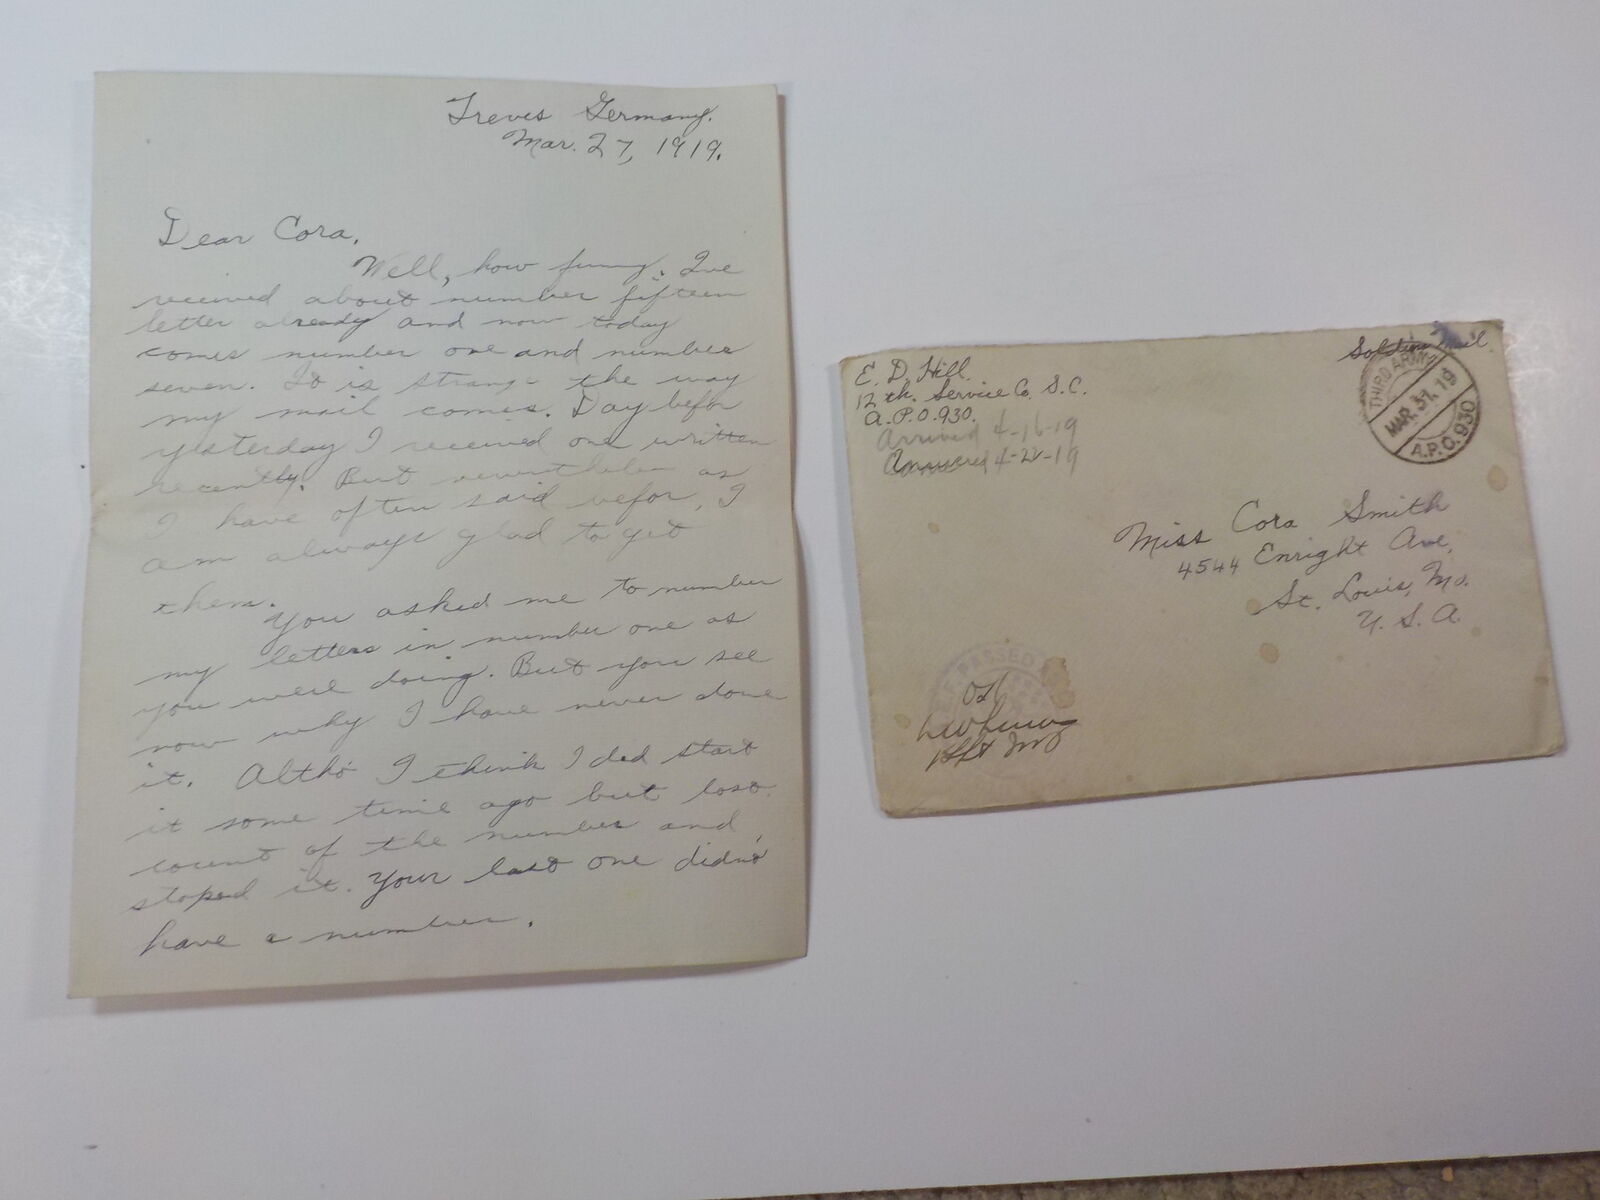 Treves Germany.
Mar. 27, 1919.
Dear Cora,
Well, how funny. I've
received about number fifteen
letter already and now today
comes number one and number
seven. It is strange the way
my mail comes. Day befor
yesterday I received one written
recently. But nevertheless as
I have often said befor, I
am always glad to get
them.
You asked me to number
my letters in number one as
you were doing. But you see
now why I have never done
it. Altho I think I did start
it some time ago but lost
count of the number and
stoped it. Your last one didn't
have a number.
E. D. Hill.
12th. Service Co. S.C.
A.P.O. 930.
Arrived 4-16-19
Answered 4-22-19
Soldier Mail.
THIRD ARMY
MAR. 31. 19
A.P.O. 930
Miss Cora Smith
4544 Enright Ave,
St. Louis, Mo.
U. S. A
PASSED